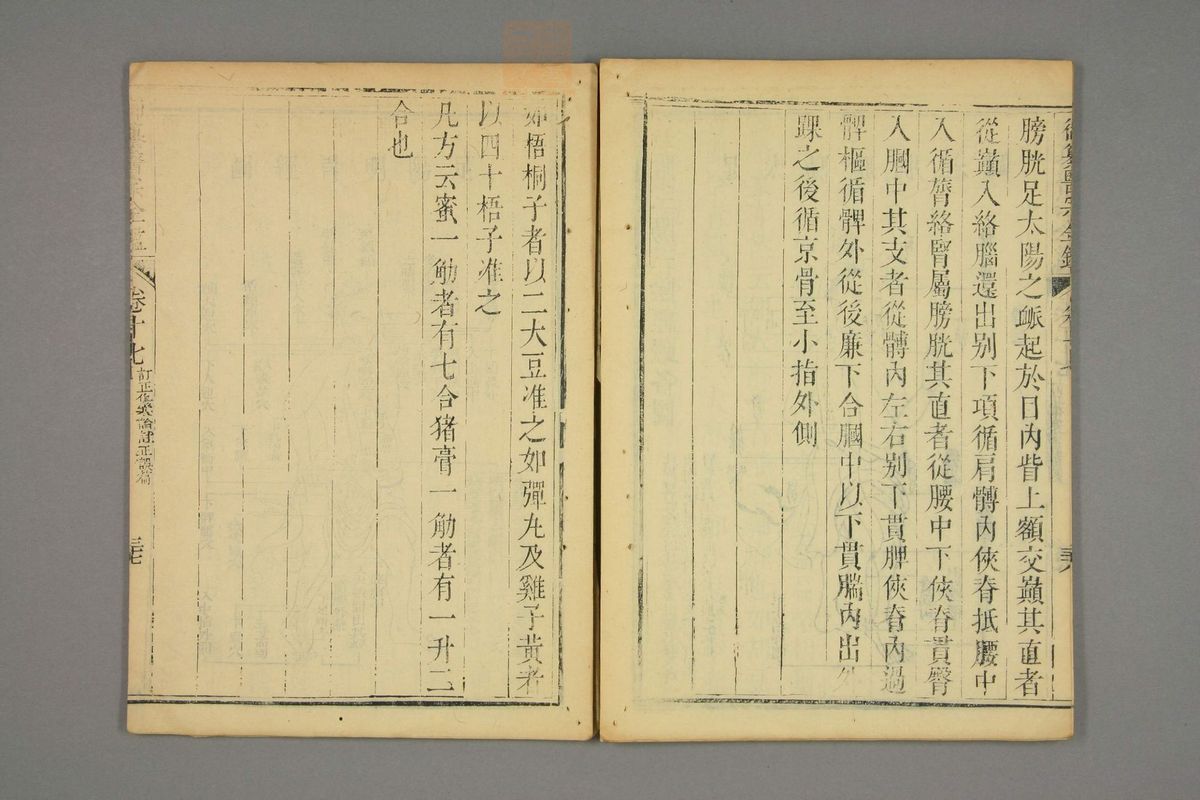 膀胱足太陽之脈起於目內眥上額交巔其直者
從巔入絡腦還出别下項循肩髆內俠脊抵腰中
入循膂絡腎屬膀胱其直者從腰中下俠脊貫臀
入膕中其支者從髆內左右别下貫胛俠脊內過
髀樞循髀外從後廉下合膕中以下貫腨內出外
踝之後循京骨至小指外側
三十八
如梧桐子者以二大豆准之如彈丸及雞子黃者
以四十梧子准之
凡方云蜜一觔者有七合猪膏一觔者有一升二
合也
卷十七
訂正傷寒論註正誤篇
三十七